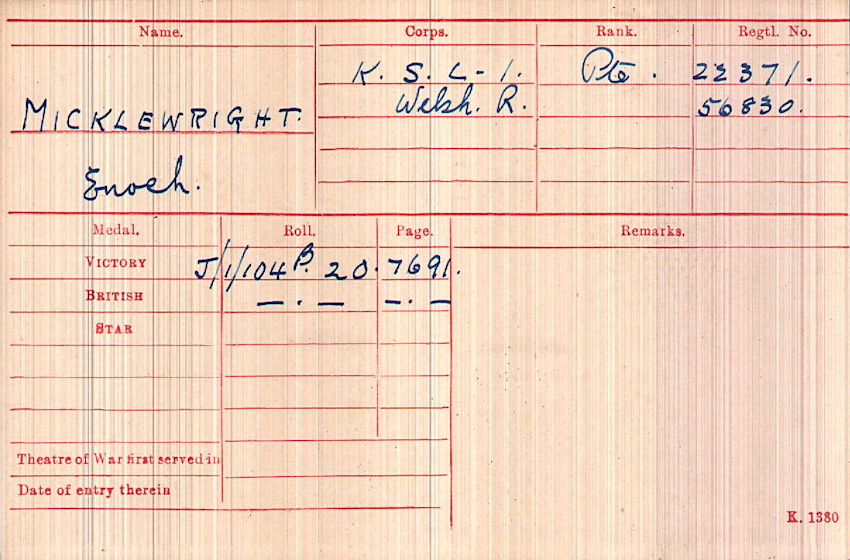 Name. Corps. Rank. Regtl. No.
K. S. L-I. Pte. 22371.
Welsh. R. 56830.
MICKLEWRIGHT.
Enoch.
Medal. Roll. Page. Remarks.
VICTORY J/1/104 B. 20. 7691.
BRITISH — . — — . —
STAR
Theatre of War first served in
Date of entry therein
K. 1380